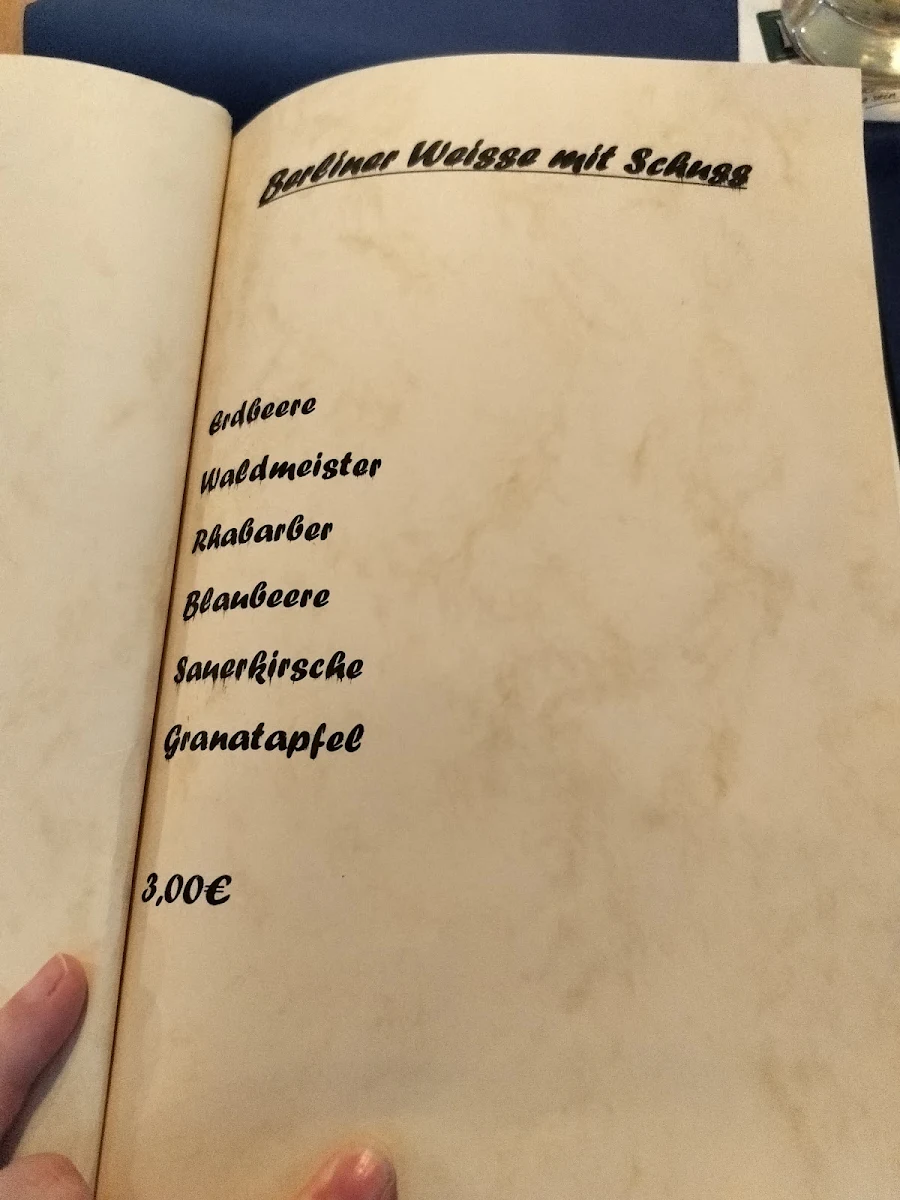 Berliner Weisse mit Schuss
Erdbeere
Waldmeister
Rhabarber
Blaubeere
Sauerkirsche
Granatapfel
3,00€